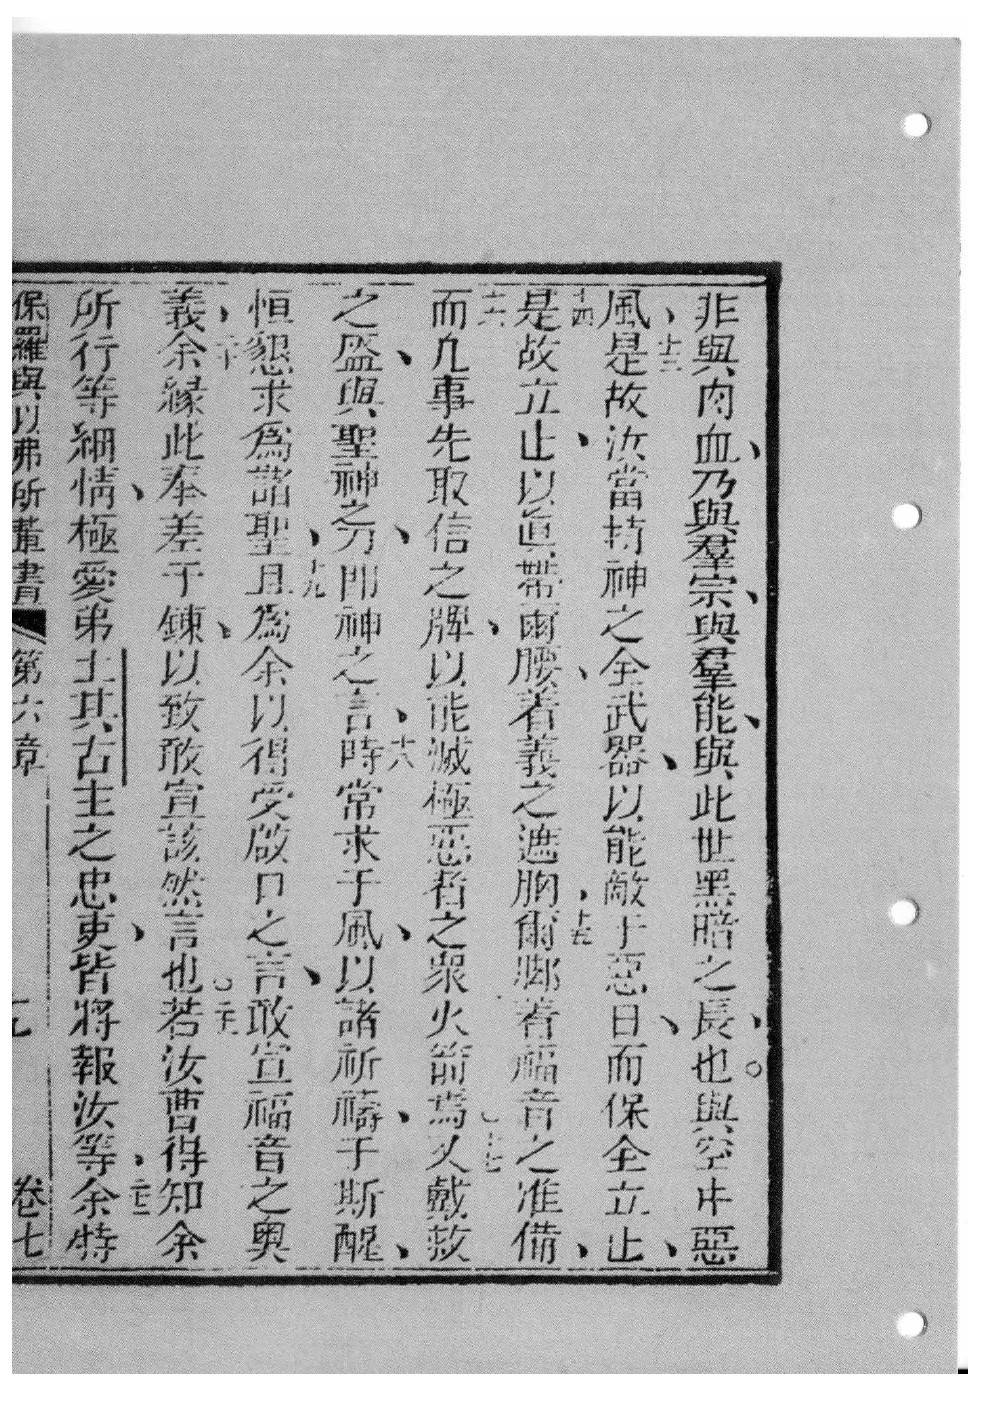 非與肉血、乃與羣宗、與羣能、與此世黑暗之長、也。與空中惡
風、十三是故汝當持神之全武器、以能敵于惡日、而保全立止、
十四是故立止、以眞帶爾腰、着義之遮胸、十五爾脚着福音之准備、
十六而凢事先取信之牌、以能滅極惡者之衆火箭焉。十七又戴救
之盛、與聖神之刀、即神之言、十八時常求于風、以諸祈禱、于斯醒、
恒懇求爲諸聖、十九且為余以得受啟口之言、敢宣福音之奥
義、二十余縁此奉差于鍊、以致敢宣該然言也。二十一若汝曹得知余
所行等細情、極愛弟士其古主之忠吏、皆將報汝等、二十二余特
保羅與以弗所輩書 第六章 七 卷七